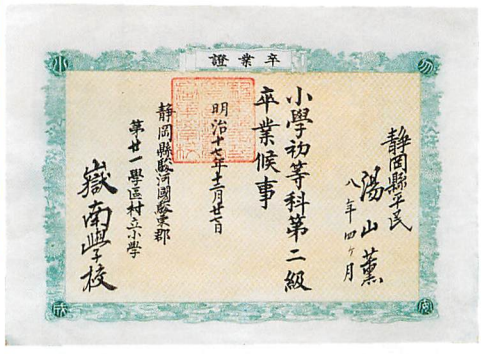 卒業證
静岡縣平民
湯山薫
八年四ヶ月
小學初等科第二級
卒業候事
明治十七年十二月廿日
静岡縣駿河國駿東郡
第廿一學區村立小學
嶽南學校